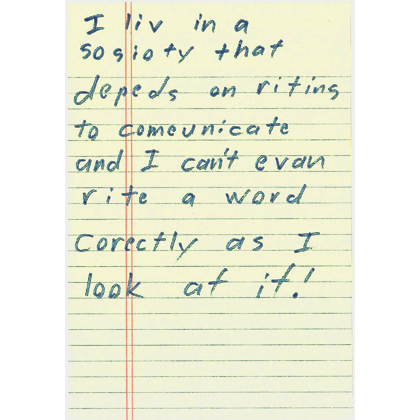 I liv in a
sosioty that
depeds on riting
to comeunicate
and I can't evan
rite a word
corectly as I
look at it!